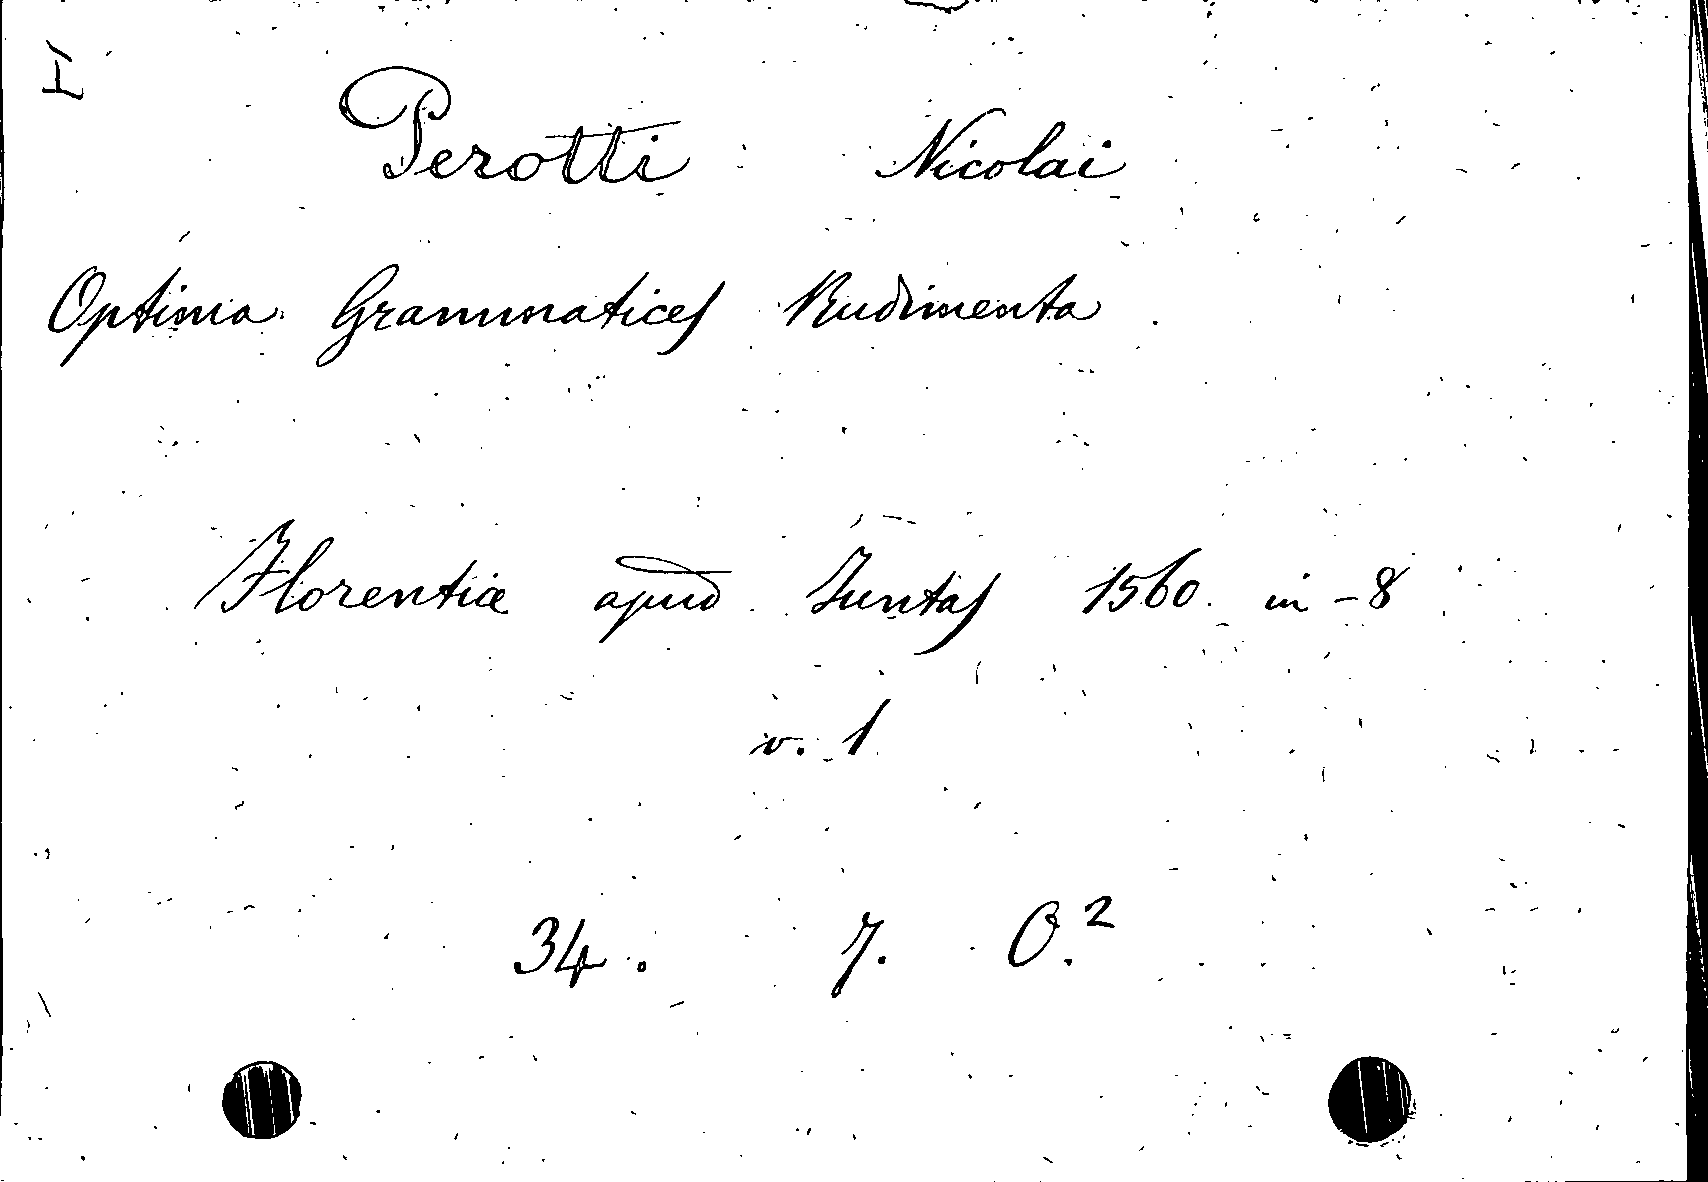 Perotti Nicolai
Optima Grammatices Rudimenta
Florentiæ apud Juntas 1560 in-8
v. 1
34. 7. O.²